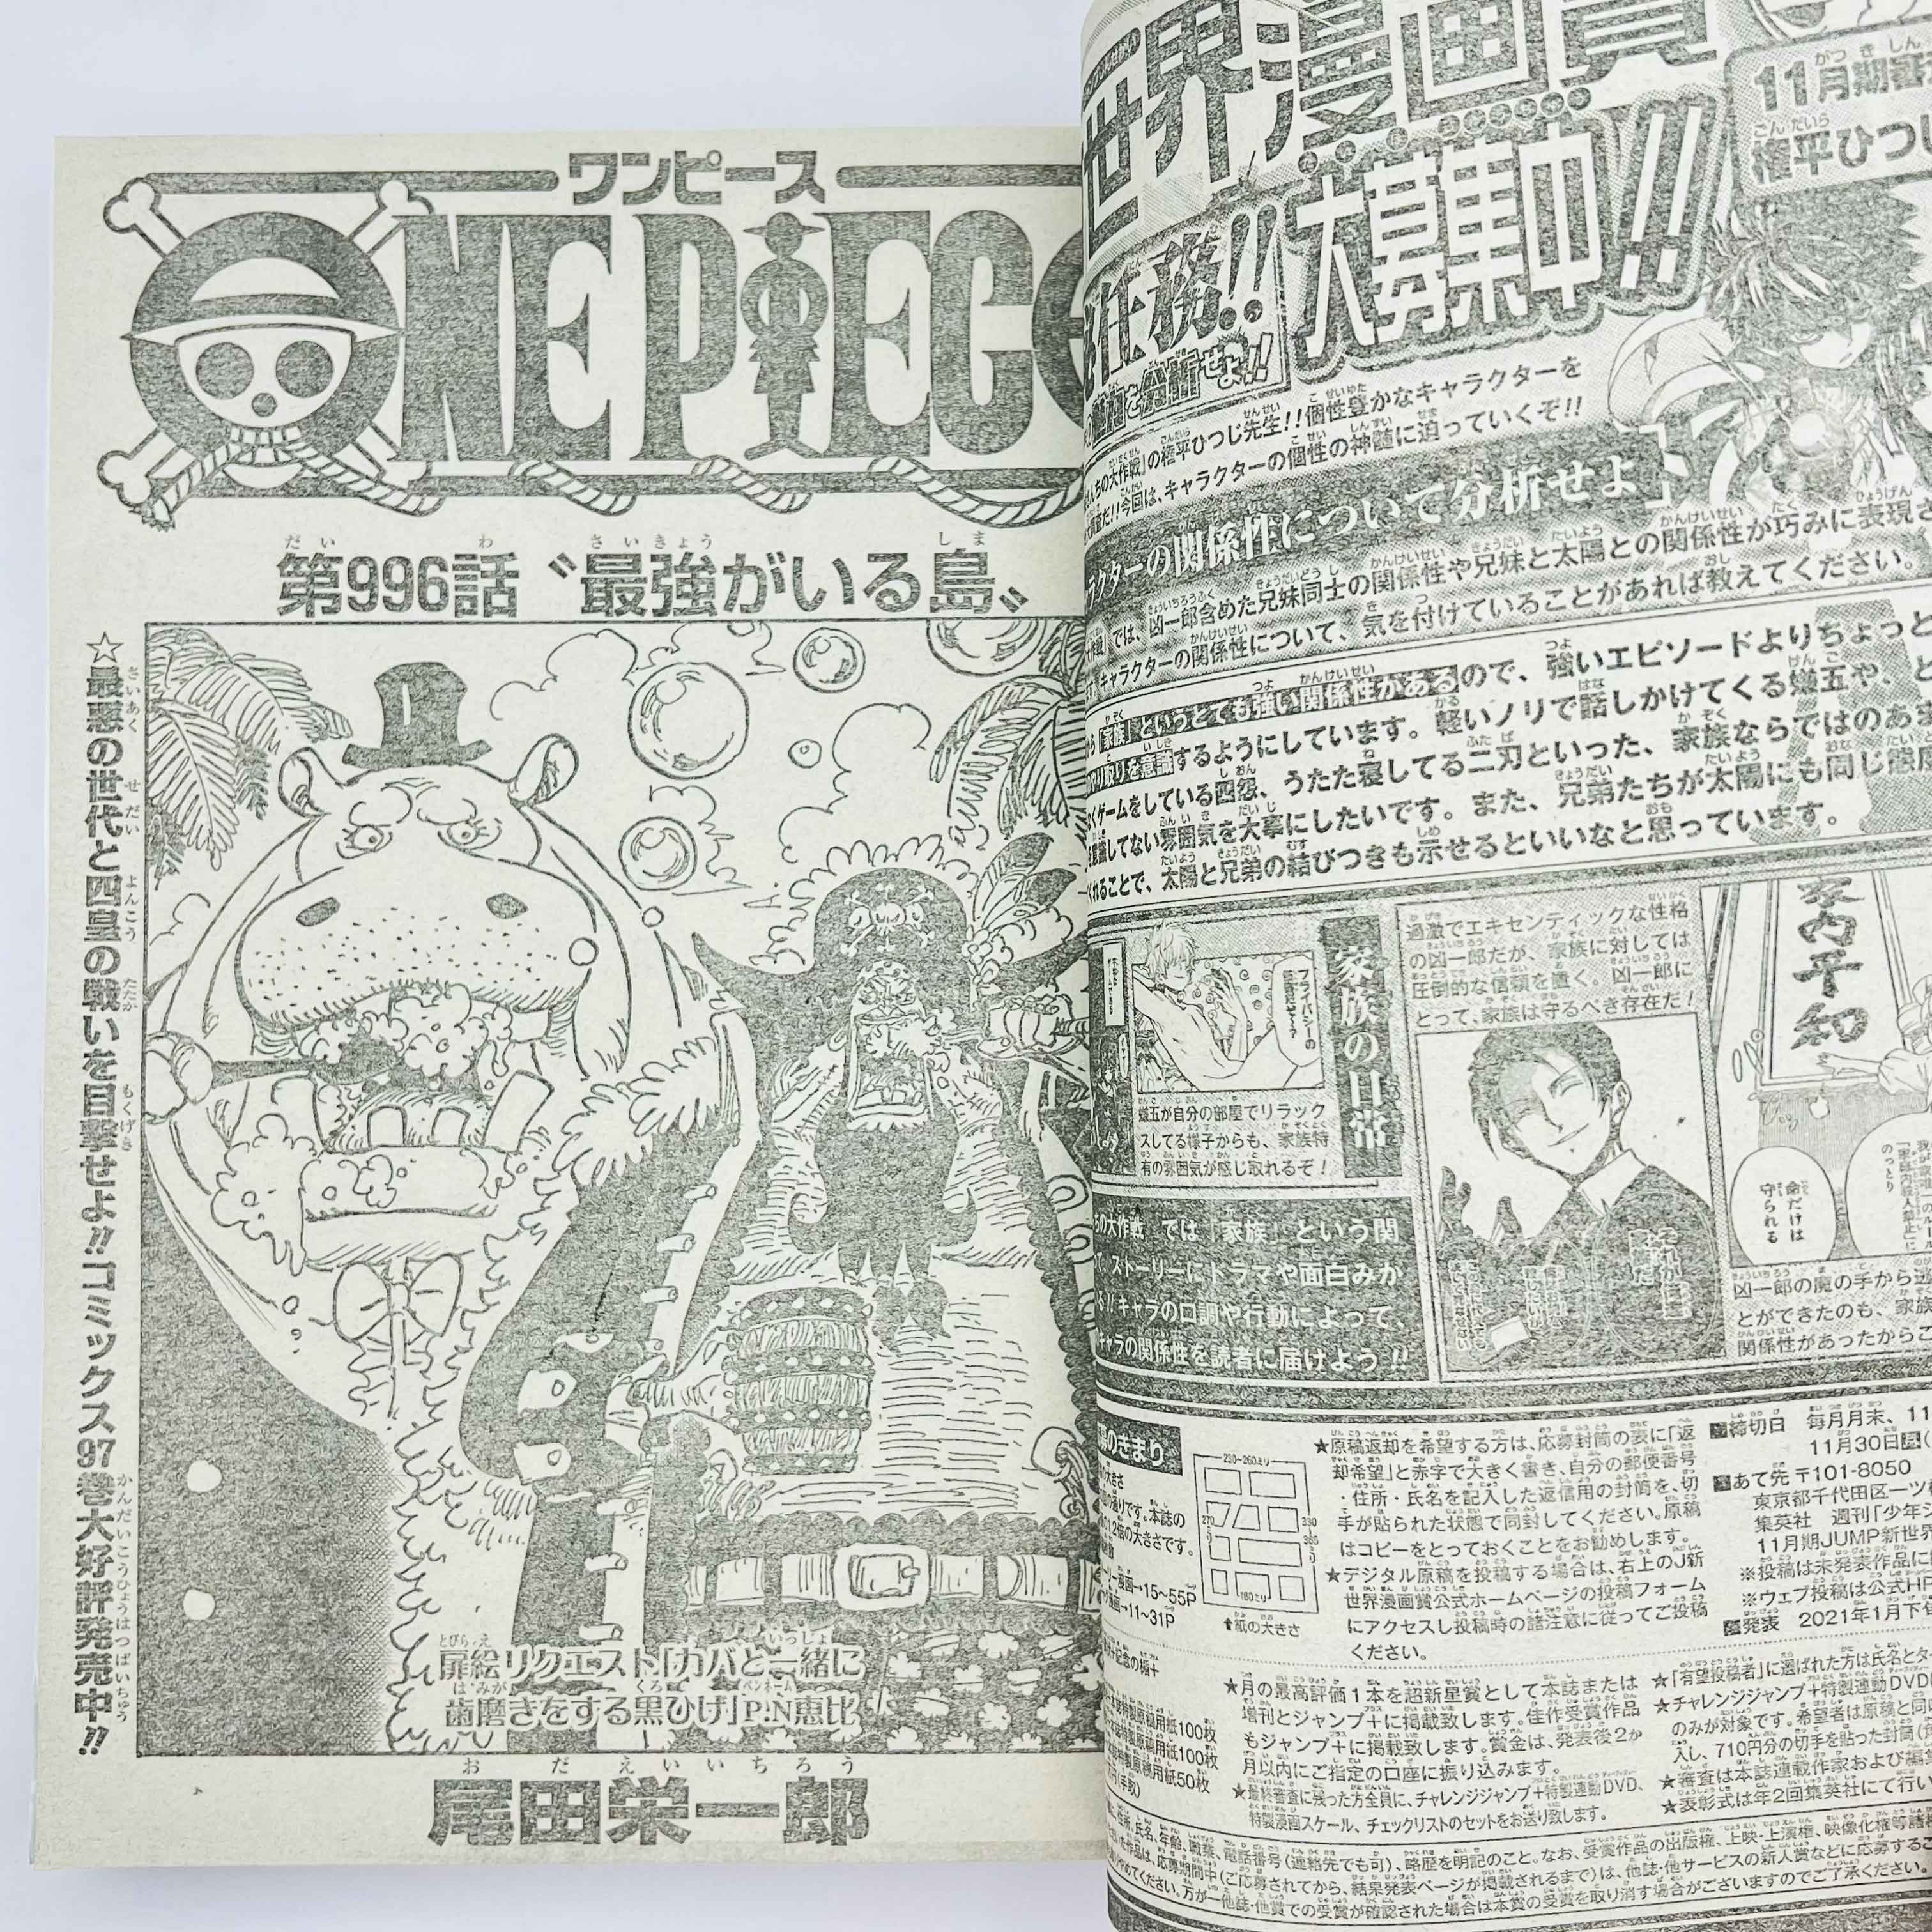 ワンピース
ONE PIECE
第996話 〝最強がいる島〟
☆最悪の世代と四皇の戦いを目撃せよ!!コミックス97巻大好評発売中!!
扉絵リクエスト「カバと一緒に
歯磨きをする黒ひげ」P.N恵比
尾田栄一郎
世界漫画賞
大募集中!!
任務!!
を分析せよ!!
11月期審
権平ひつじ
の権平ひつじ先生!!個性豊かなキャラクターを
今回は、キャラクターの個性の神髄に迫っていくぞ!!
ラクターの関係性について分析せよ
では、凶一郎含めた兄妹同士の関係性や兄妹と太陽との関係性が巧みに表現さ
キャラクターの関係性について、気を付けていることがあれば教えてください。
「家族」というとても強い関係性があるので、強いエピソードよりちょっと
やり取りを意識するようにしています。軽いノリで話しかけてくる嫌五や、と
くゲームをしている四怨、うたた寝してる二刃といった、家族ならではのあ
意識してない雰囲気を大事にしたいです。また、兄弟たちが太陽にも同じ態度
くれることで、太陽と兄弟の結びつきも示せるといいなと思っています。
家族の日常
プライバシーの
嫌五が自分の部屋でリラック
スしてる様子からも、家族特
有の雰囲気が感じ取れるぞ!
過激でエキセンティックな性格
の凶一郎だが、家族に対しては
圧倒的な信頼を置く。凶一郎に
とって、家族は守るべき存在だ!
家内平和
命だけは
守られる
のっとり
凶一郎の魔の手から逃
とができたのも、家族
関係性があったからこ
の大作戦 では「家族」という関
ストーリーにドラマや面白みが
る!!キャラの口調や行動によって、
キャラの関係性を読者に届けよう!!
のきまり
の大きさ
の通りです。本誌の
1.2倍の大きさです。
ーリー漫画→15~55P
漫画→11~31P
紙の大きさ
★原稿返却を希望する方は、応募封筒の表に「返
却希望」と赤字で大きく書き、自分の郵便番号
・住所・氏名を記入した返信用の封筒を、切
手が貼られた状態で同封してください。原稿
はコピーをとっておくことをお勧めします。
★デジタル原稿を投稿する場合は、右上のJ新
世界漫画賞公式ホームページの投稿フォーム
にアクセスし投稿時の諸注意に従ってご投稿
ください。
締切日 毎月月末、11
11月30日
あて先 〒101-8050
東京都千代田区一ツ
集英社 週刊「少年
11月期JUMP新世界
※投稿は未発表作品に
※ウェブ投稿は公式HP
発表 2021年1月下
特製原稿用紙100枚
特製原稿用紙100枚
特製原稿用紙50枚
★月の最高評価1本を超新星賞として本誌または
増刊とジャンプ+に掲載致します。佳作受賞作品
もジャンプ+に掲載致します。賞金は、発表後2か
月以内にご指定の口座に振り込みます。
★最終審査に残った方全員に、チャレンジジャンプ+特製連動DVD、
特製漫画スケール、チェックリストのセットをお送り致します。
★「有望投稿者」に選ばれた方は氏名とタ
★チャレンジジャンプ+特製連動DVD
のみが対象です。希望者は原稿と同
入し、710円分の切手を貼った封筒
★審査は本誌連載作家および編集
★表彰式は年2回集英社にて行い
住所、氏名、年齢、職業、電話番号(連絡先でも可)、略歴を明記のこと。なお、受賞作品の出版権、上映・上演権、映像化権等諸権
作品は、応募期間中(ご応募されてから、結果発表ページが掲載されるまで)は、他誌・他サービスの新人賞などに応募するこ
やめてください。万が一他誌・他賞での受賞が確認された場合は本賞の受賞を取り消す場合がございますのでご了承ください。